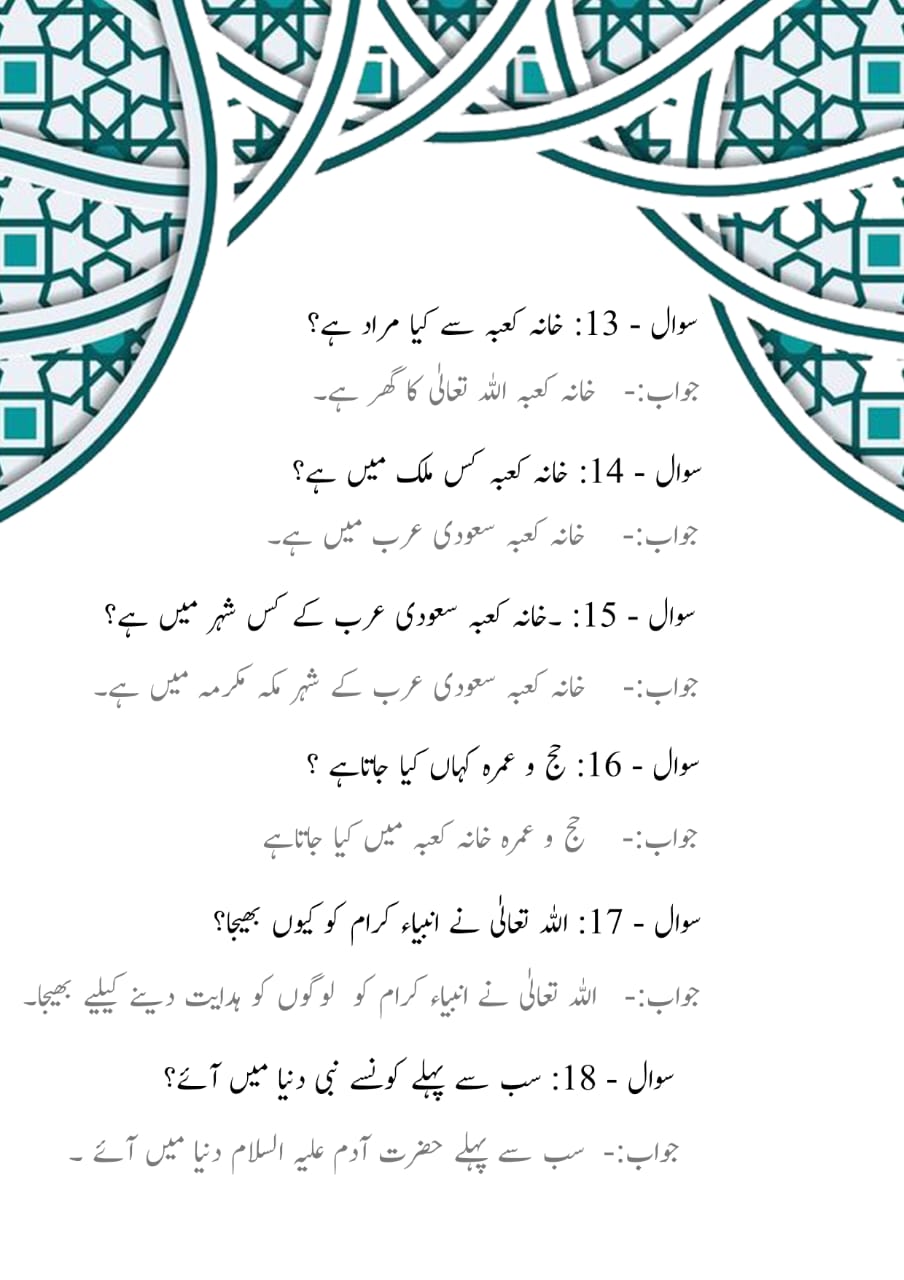 سوال - 13: خانہ کعبہ سے کیا مراد ہے؟
جواب:- خانہ کعبہ اللہ تعالٰی کا گھر ہے۔
سوال - 14: خانہ کعبہ کس ملک میں ہے؟
جواب:- خانہ کعبہ سعودی عرب میں ہے۔
سوال - 15: ۔خانہ کعبہ سعودی عرب کے کس شہر میں ہے؟
جواب:- خانہ کعبہ سعودی عرب کے شہر مکہ مکرمہ میں ہے۔
سوال - 16: حج و عمرہ کہاں کیا جاتاہے ؟
جواب:- حج و عمرہ خانہ کعبہ میں کیا جاتاہے
سوال - 17: اللہ تعالٰی نے انبیاء کرام کو کیوں بھیجا؟
جواب:- اللہ تعالٰی نے انبیاء کرام کو لوگوں کو ہدایت دینے کیلیے بھیجا۔
سوال - 18: سب سے پہلے کونسے نبی دنیا میں آئے؟
جواب:- سب سے پہلے حضرت آدم علیہ السلام دنیا میں آئے ۔